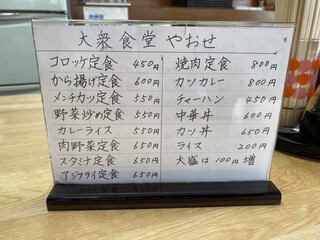 大衆食堂 やおせ
コロッケ定食 450円
から揚げ定食 600円
メンチカツ定食 550円
野菜炒め定食 550円
カレーライス 550円
肉野菜定食 650円
スタミナ定食 650円
アジフライ定食 650円
焼肉定食 800円
カツカレー 800円
チャーハン 450円
中華丼 600円
カツ丼 650円
ライス 200円
大盛は100円増